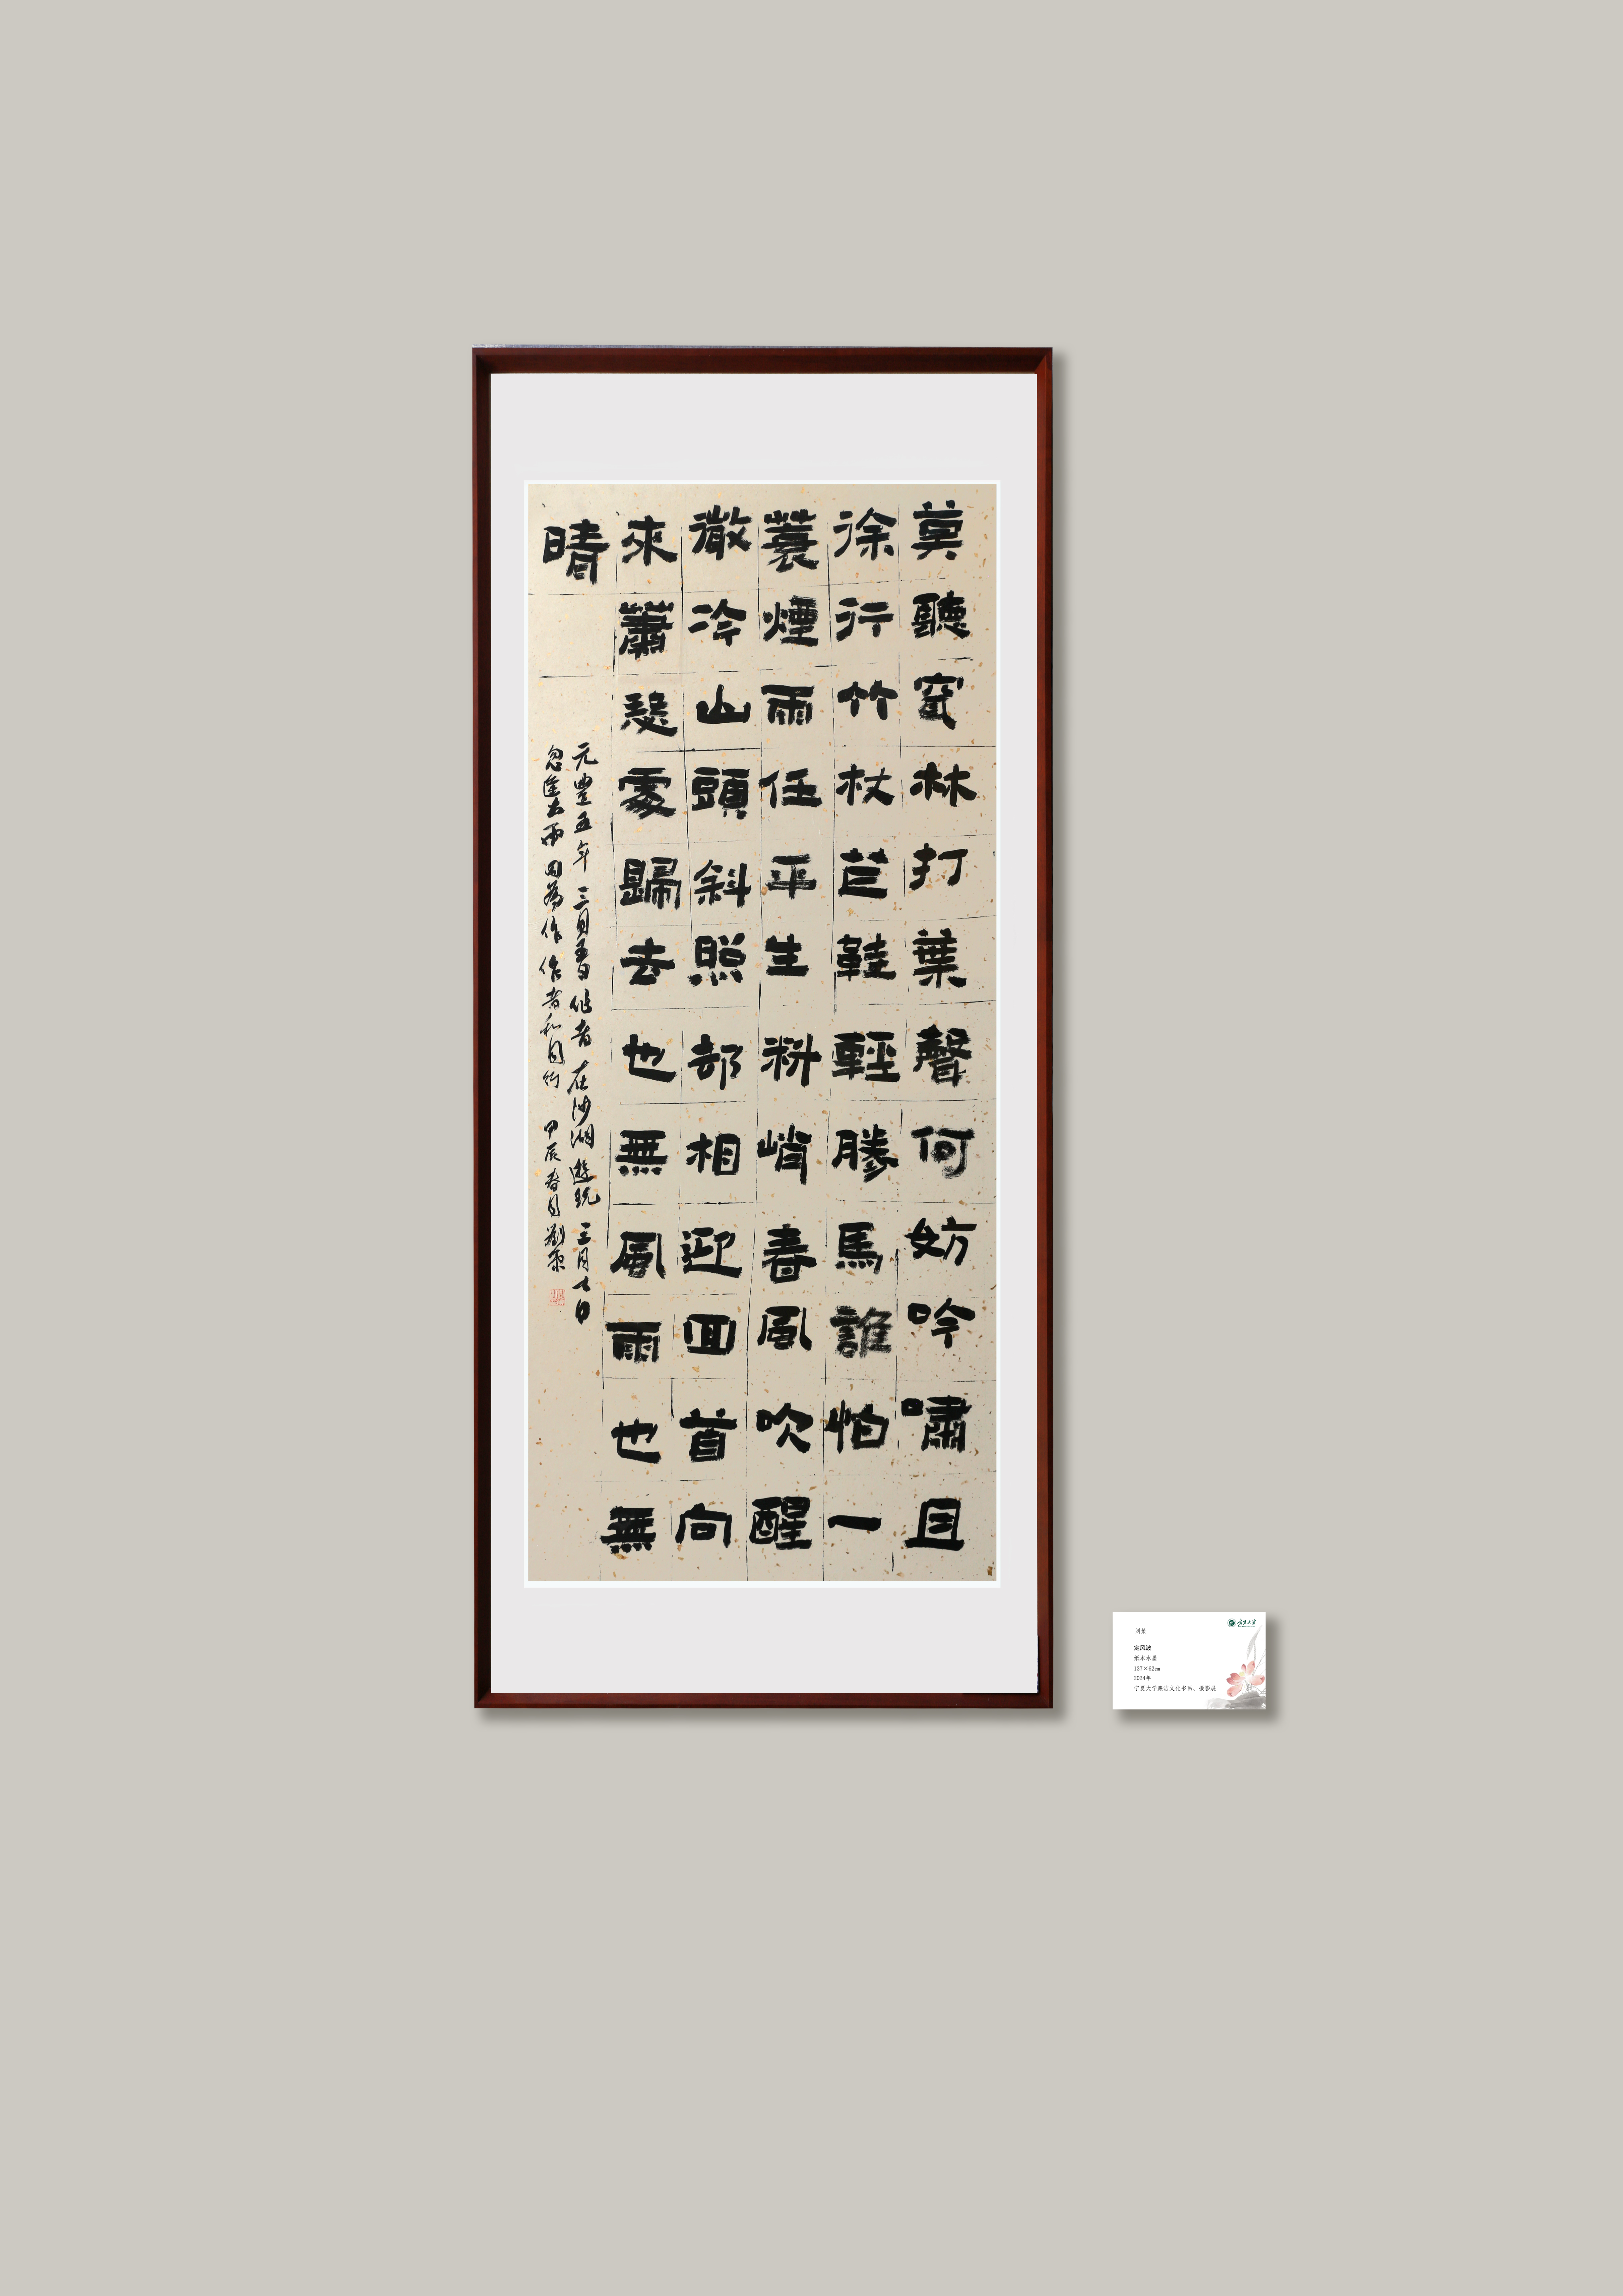 莫聽穿林打葉聲何妨吟嘯且
徐行竹杖芒鞋輕勝馬誰怕一
蓑煙雨任平生料峭春風吹醒
微冷山頭斜照却相迎回首向
來蕭瑟處歸去也無風雨也無
晴
元豐五年三月春日作者在沙湖遊玩三月七日
忽逢大雨因為作 作者和同行 甲辰春月劉
刘
定风波
纸本水墨
137×62cm
2024年
宁夏大学廉洁文化书画、摄影展
宁夏大学